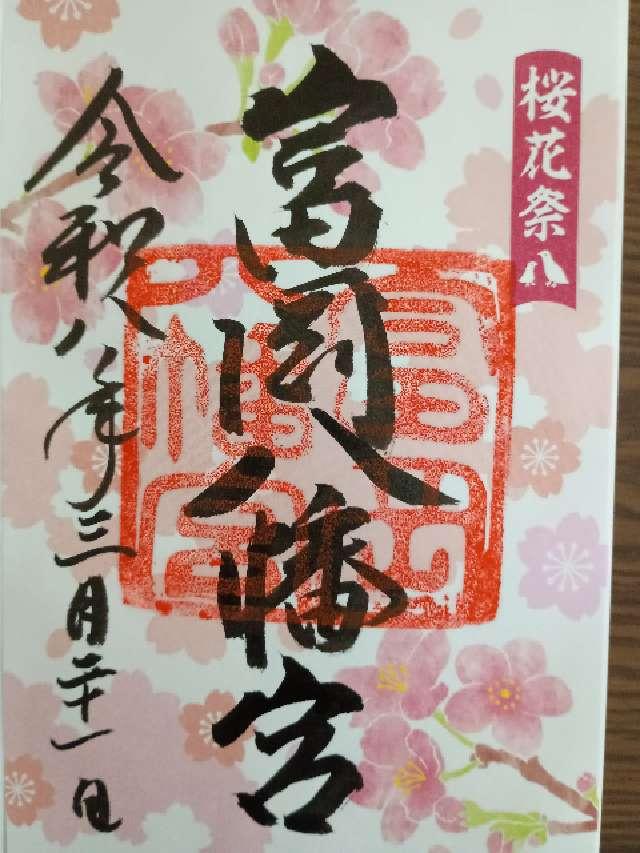 桜花祭
富岡八幡宮
令和八年三月二十一日
富岡八幡宮